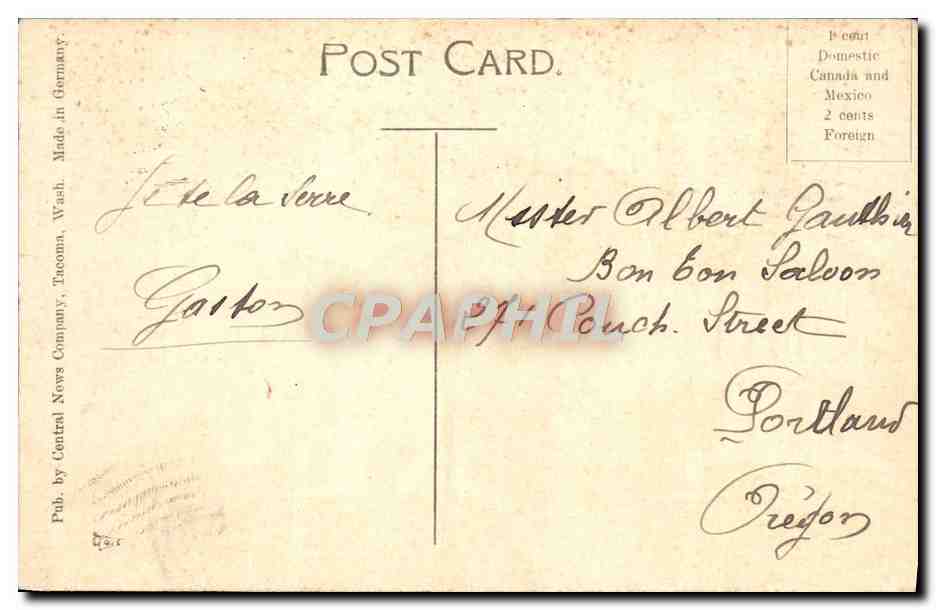 POST CARD.
1 cent
Domestic
Canada and
Mexico
2 cents
Foreign
Pub. by Central News Company, Tacoma, Wash. Made in Germany.
Je te la serre
Gaston
Mister Albert Gauthier
Bon Ton Saloon
Couch. Street
Portland
Orégon
CPAPHIL